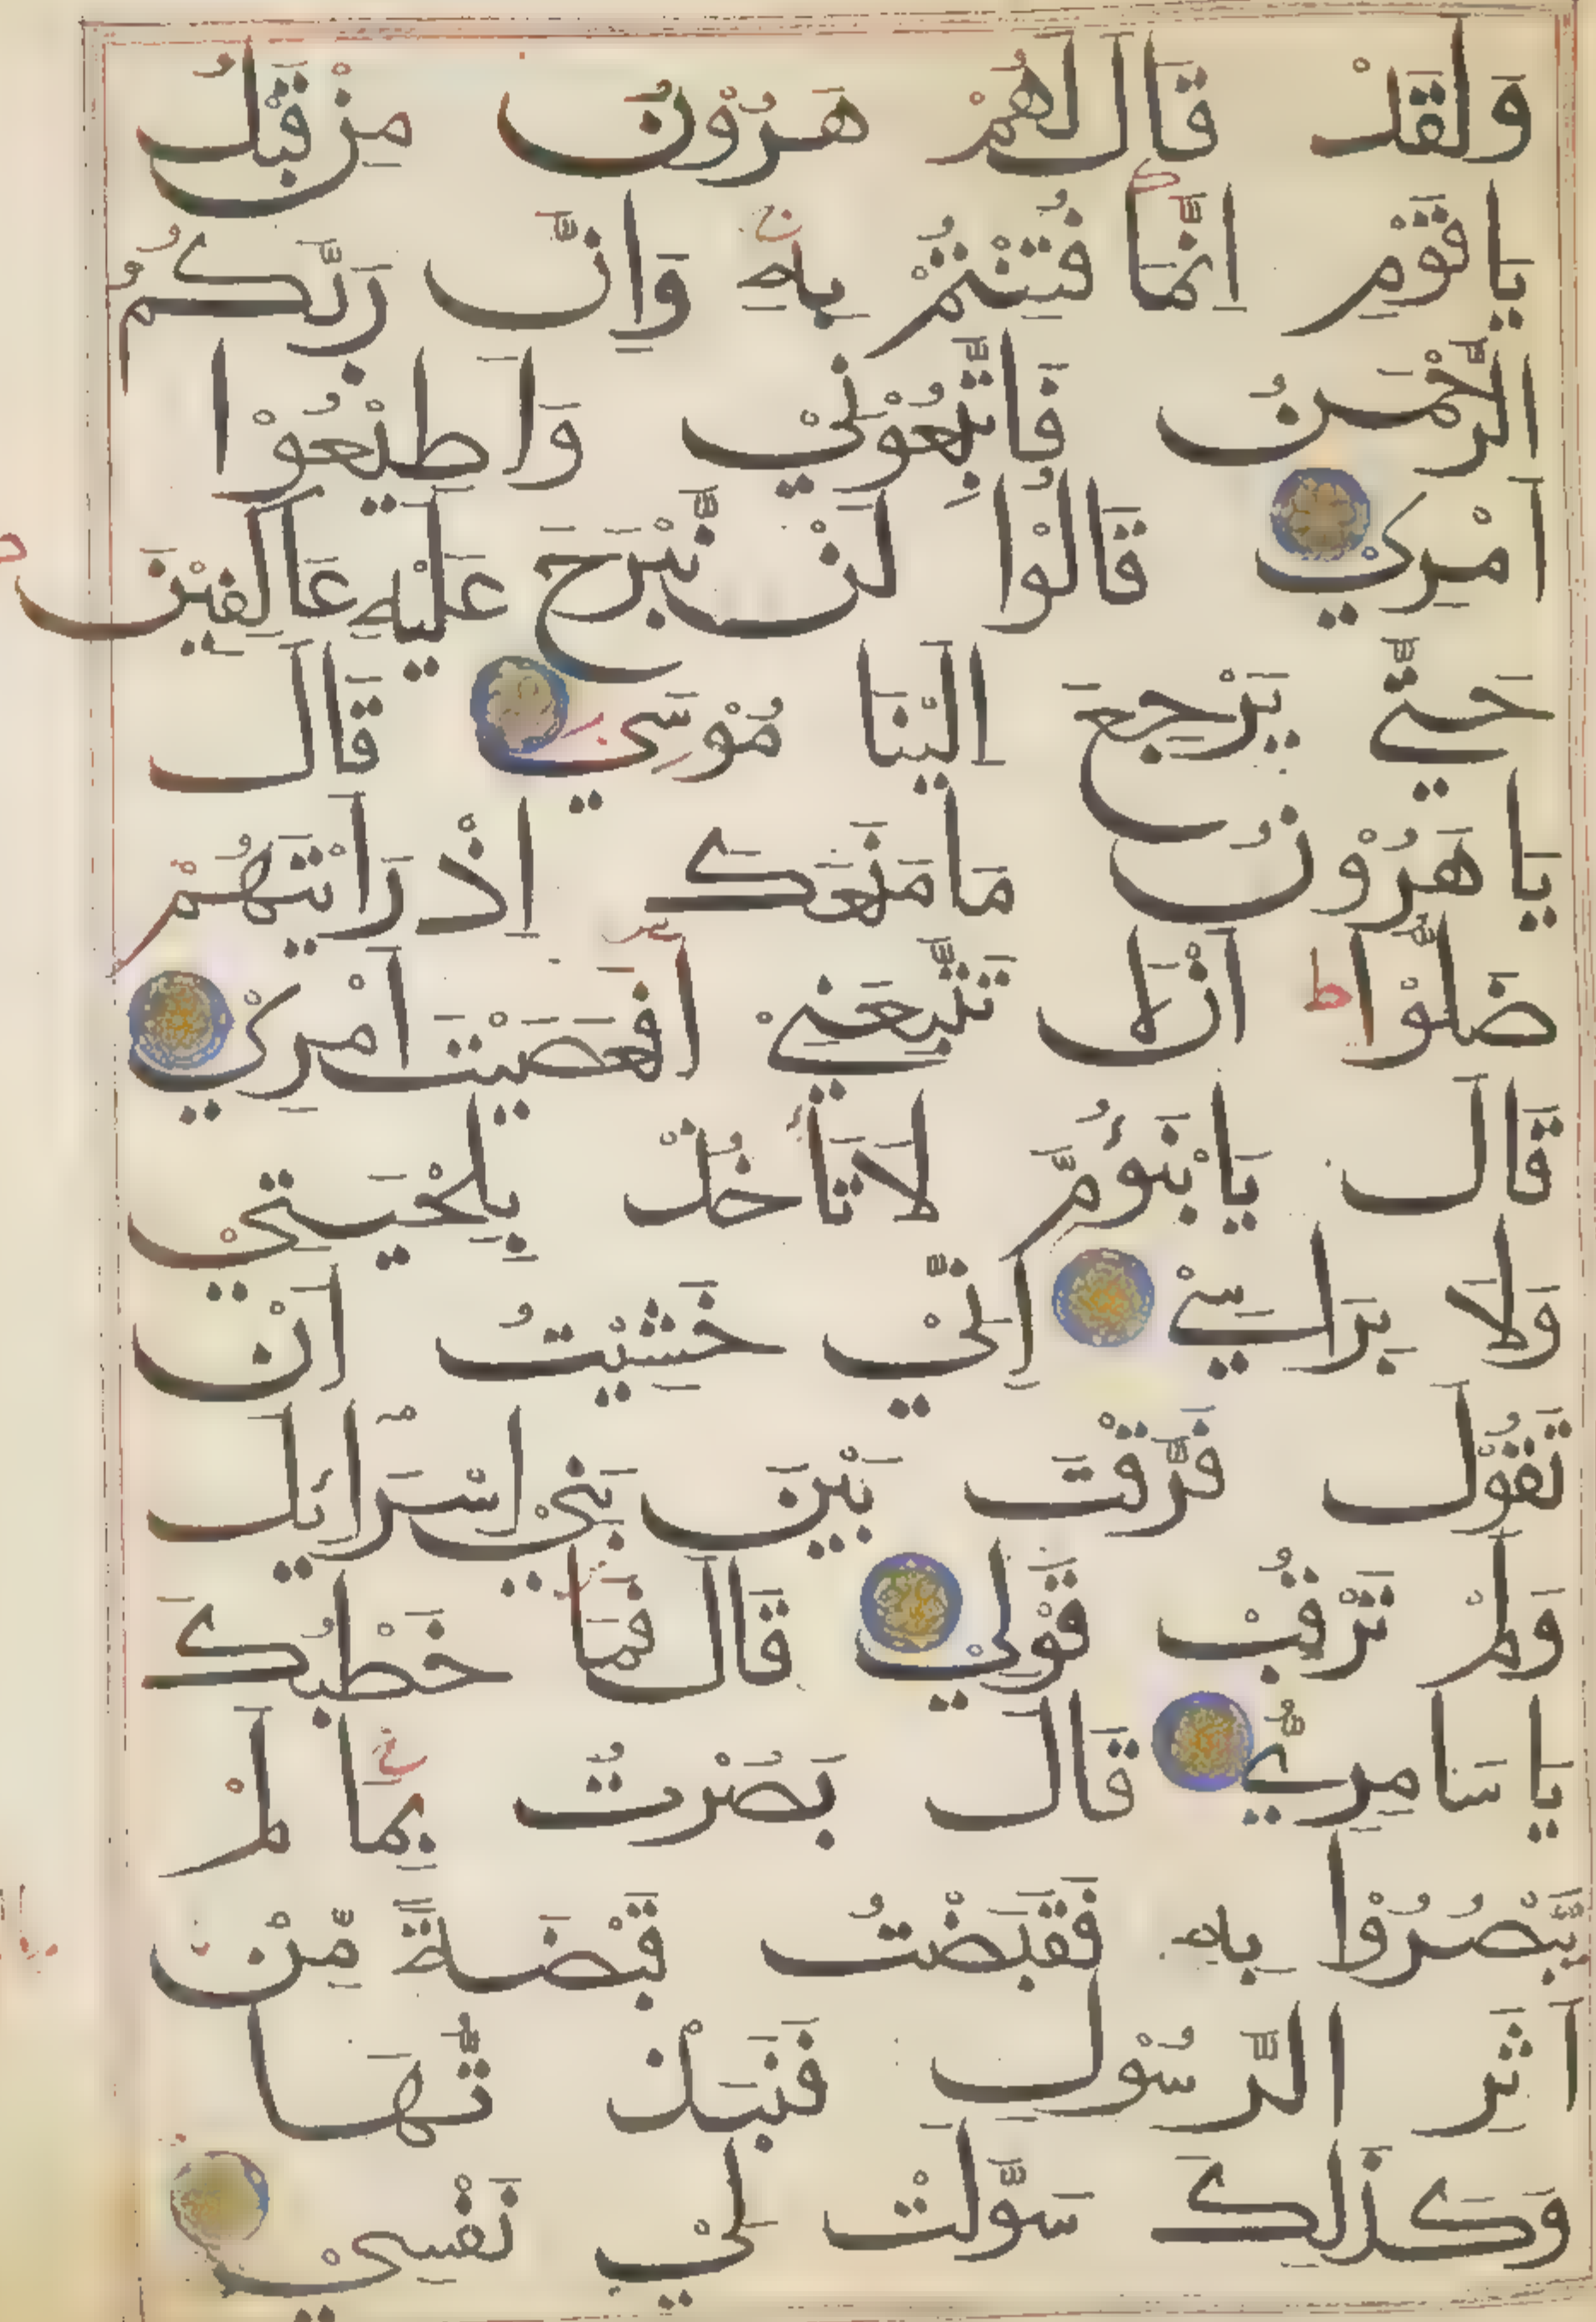 وَلَقَدْ قَالَ لَهُمْ هَرُوْنُ مِنْ قَبْلُ
يَا قَوْمِ اِنَّمَا فُتِنْتُمْ بِهِ وَاِنَّ رَبَّكُمُ
الرَّحْمَنُ فَاتَّبِعُوْنِيْ وَاَطِيْعُوْا
اَمْرِيْ قَالُوْا لَنْ نَّبْرَحَ عَلَيْهِ عَاكِفِيْنَ
حَتَّي يَرْجِعَ اِلَيْنَا مُوْسَي قَالَ
يَا هَرُوْنُ مَا مَنَعَكَ اِذْ رَاَيْتَهُمْ
ضَلُّوْا ط اَنْ لَا تَتَّبِعَنِيْ اَفَعَصَيْتَ اَمْرِيْ
قَالَ يَا بْنَؤُمِّ لَا تَأْخُذْ بِلِحْيَتِيْ
وَلَا بِرَاسِيْ اِنِّيْ خَشِيْتُ اَنْ
تَقُوْلَ فَرَّقْتَ بَيْنَ بَنِيْ اِسْرَائِلَ
وَلَمْ تَرْقُبْ قَوْلِيْ قَالَ فَمَا خَطْبُكَ
يَا سَامِرِيُّ قَالَ بَصُرْتُ بِمَا لَمْ
يَبْصُرُوْا بِهِ فَقَبَضْتُ قَبْضَةً مِّنْ
اَثَرِ الرَّسُوْلِ فَنَبَذْ تُّهَا
وَكَذَلِكَ سَوَّلَتْ لِيْ نَفْسِيْ